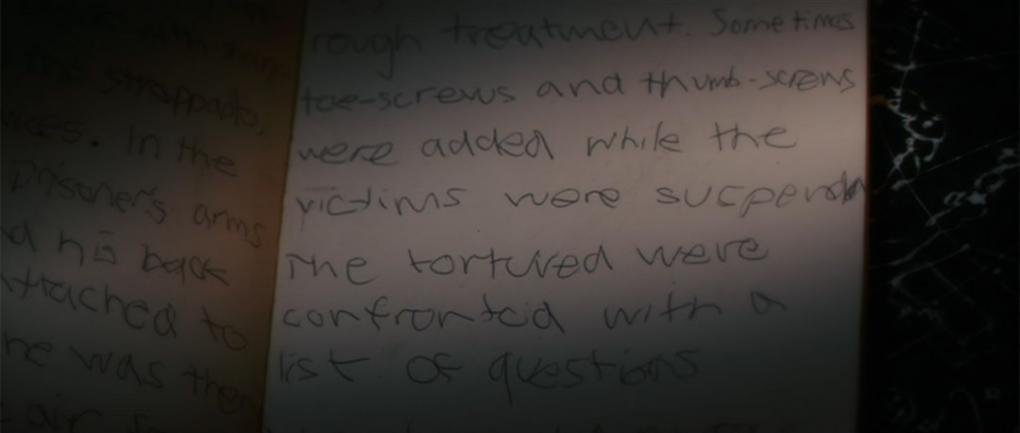 strappado,
In the
prisoner's arms
his back
attached to
he was then
rough treatment. Sometimes
toe-screws and thumb-screws
were added while the
victims were suspend
The tortured were
confronted with a
list of questions